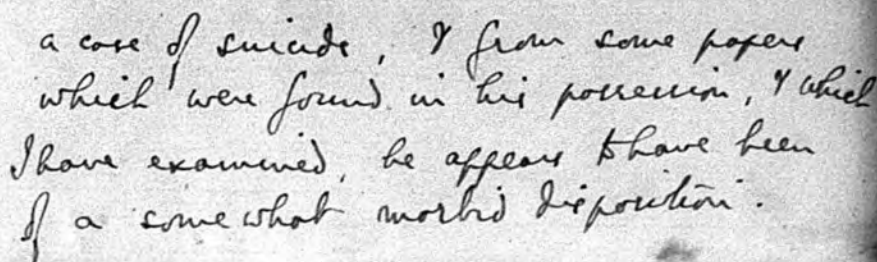 a case of suicide, & from some papers
which were found in his possession, & which
I have examined, he appears to have been
of a somewhat morbid disposition.